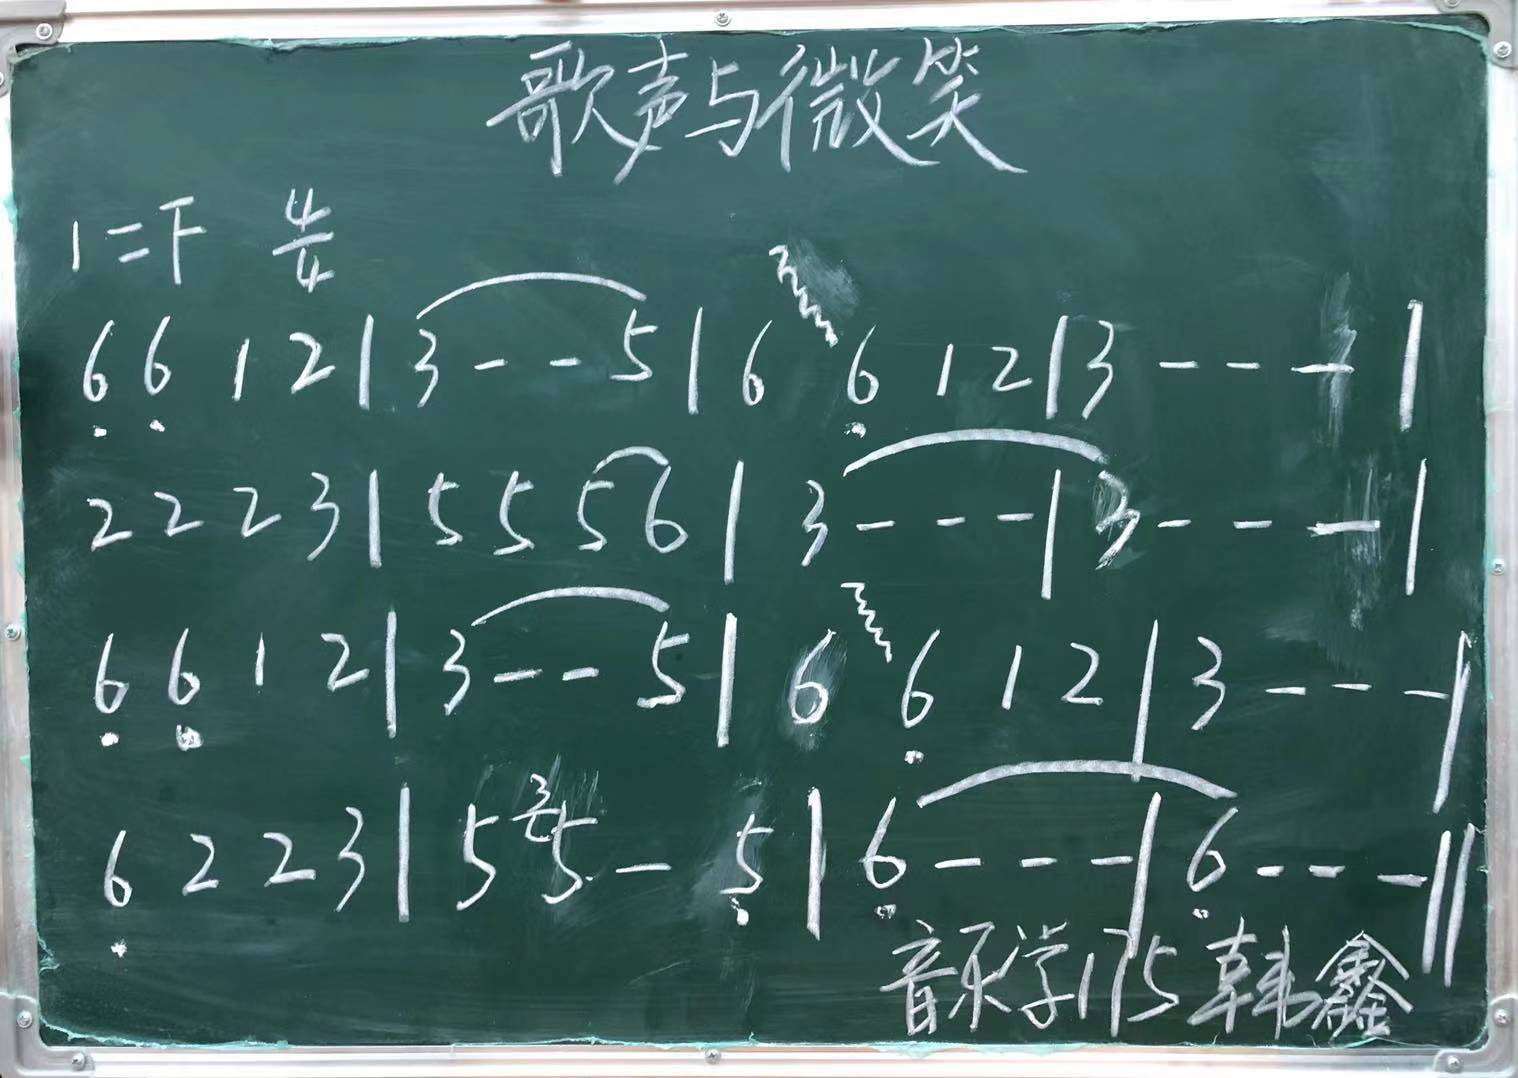 歌声与微笑
1=F 4/4
6̣ 6̣ 1 2 | 3 - - 5 | 6 6̣ 1 2 | 3 - - - |
2 2 2 3 | 5 5 5 6 | 3 - - - | 3 - - - |
6̣ 6̣ 1 2 | 3 - - 5 | 6 6̣ 1 2 | 3 - - - |
6̣ 2 2 3 | 5 3 5 - 5̣ | 6̣ - - - | 6̣ - - - ||
音乐学175 韩鑫